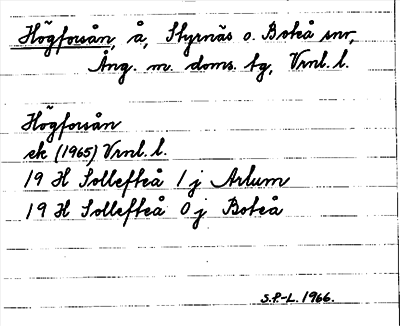 Högforsån, å, Styrnäs o. Boteå snr,
Ång. m. doms. tg, Vrnl. l.
Högforsån
ek (1965) Vrnl. l.
19 H Sollefteå 1 j Arlum
19 H Sollefteå 0 j Boteå
S.P.-L. 1966.